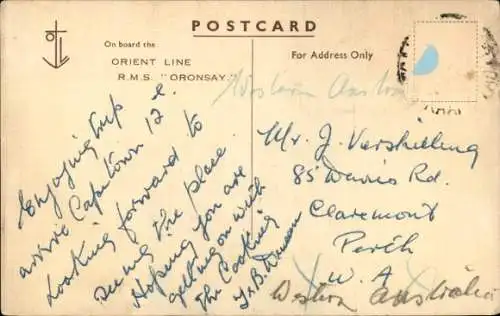 POSTCARD
On board the
ORIENT LINE
R.M.S. "ORONSAY."
For Address Only
Western Aust
Enjoying trip
arrive Capetown 12
Looking forward to
seeing the place.
Hoping you are
getting on with
the Cooking
Mr. J. Verschilling
85 Davis Rd.
Claremont
Perth
W. A
Western Australia